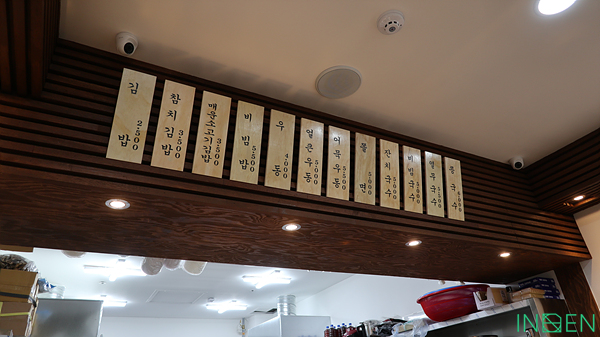 김밥 2,500
참치김밥 3,500
매운소고기김밥 3,500
비빔밥 5,500
우동 4,000
얼큰우동 5,000
어묵우동 5,500
쫄면 5,000
잔치국수 5,000
비빔국수 5,000
열무국수 5,500
콩국수
INQEN